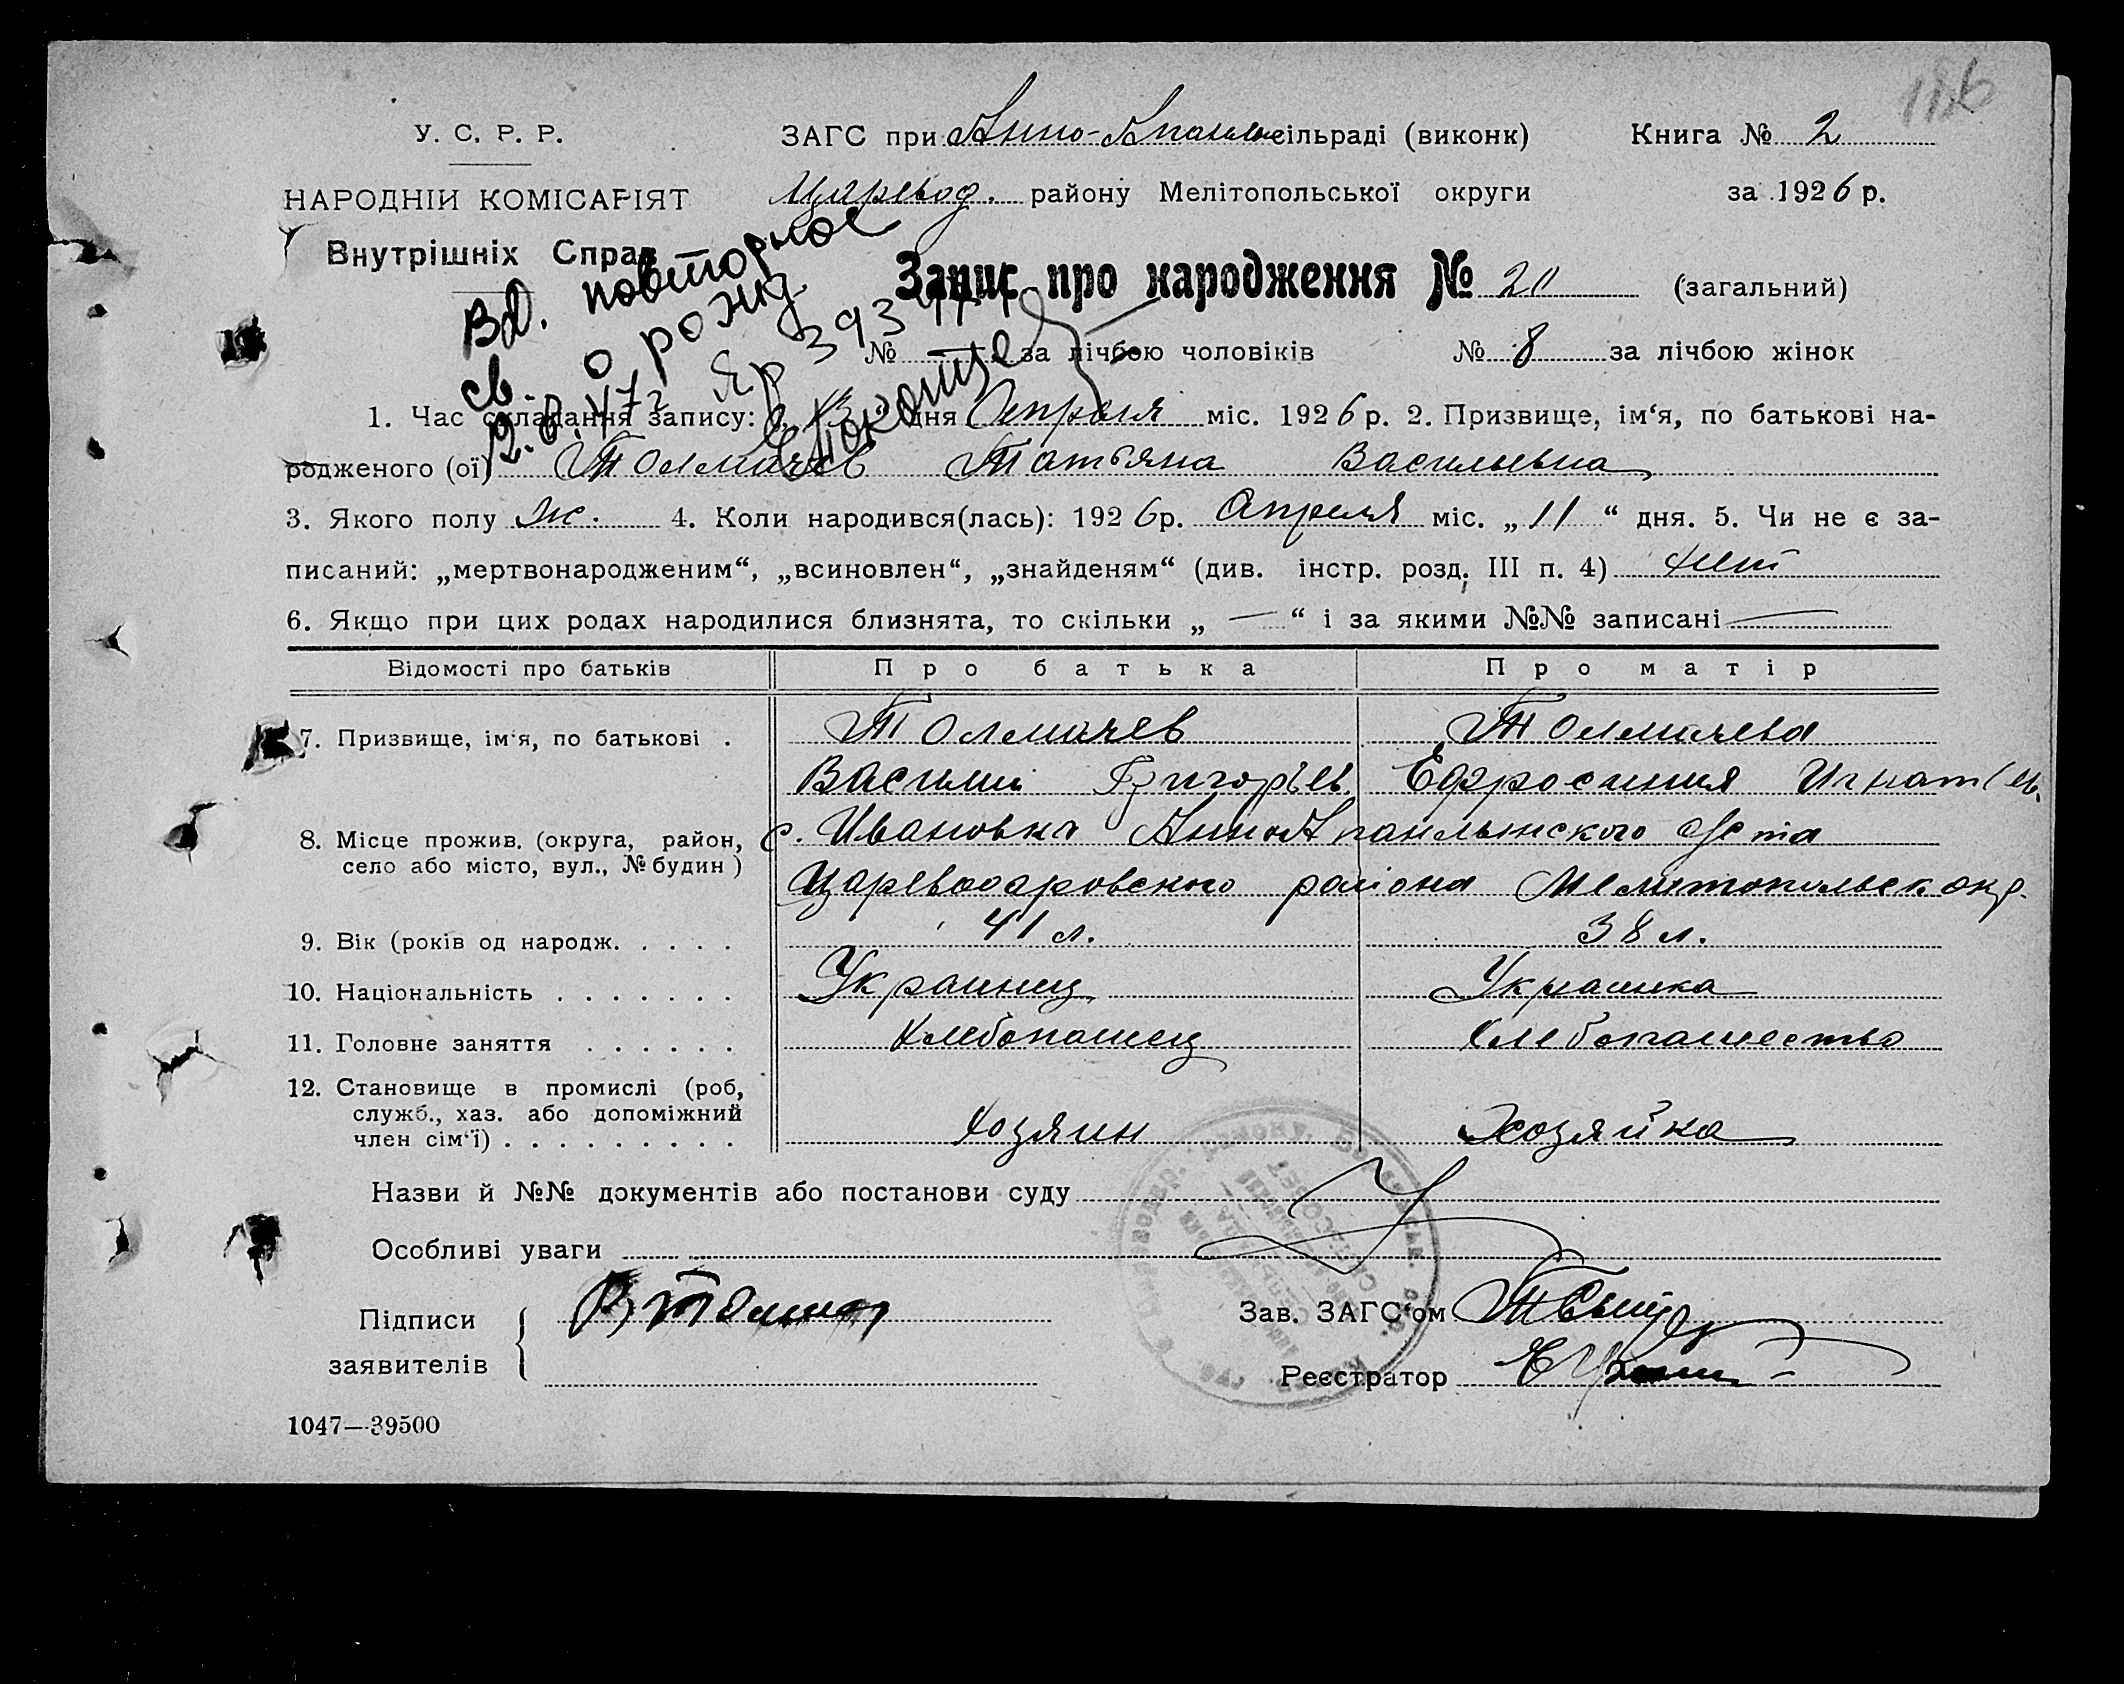 186
У. С. Р. Р.
ЗАГС при Анно-Апан сільраді (виконк)
Книга № 2
НАРОДНІЙ КОМІСАРІЯТ
Царевод. району Мелітопольської округи
за 1926 р.
Внутрішніх Справ
Запис про народження № 20 (загальний)
Вд. повторное
св. о рожд.
2. 8. 47г ЯР
№ — за лічбою чоловіків № 8 за лічбою жінок
1. Час складання запису: „13“ дня Апреля міс. 1926 р. 2. Призвище, ім‘я, по батькові на-
родженого (ої) Толмачев Татьяна Васильевна
3. Якого полу ж. 4. Коли народився(лась): 1926р. Апреля міс. „11“ дня. 5. Чи не є за-
писаний: „мертвонародженим“, „всиновлен“, „знайденям“ (див. інстр. розд. III п. 4) нет
6. Якщо при цих родах народилися близнята, то скільки „ — “ і за якими №№ записані —
Відомості про батьків
Про батька
Про матір
7. Призвище, ім‘я, по батькові .
Толмачев
Толмачева
Василий Григорьев.
Ефросиния Игнатьев.
8. Місце прожив. (округа, район,
село або місто, вул., № будин )
с. Ивановка
Цареводаровского района Мелитопольск окр.
9. Вік (років од народж. . . . .
41 л.
38 л.
10. Національність . . . . . . .
Украинец
Украинка
11. Головне заняття . . . . . .
Хлебопашец
Хлебопашество
12. Становище в промислі (роб,
служб., хаз. або допоміжний
член сім‘ї) . . . . . . . . .
Хозяин
Хозяйка
Назви й №№ документів або постанови суду
Особливі уваги
Підписи
заявителів
Зав. ЗАГС‘ом
Реєстратор
1047—39500